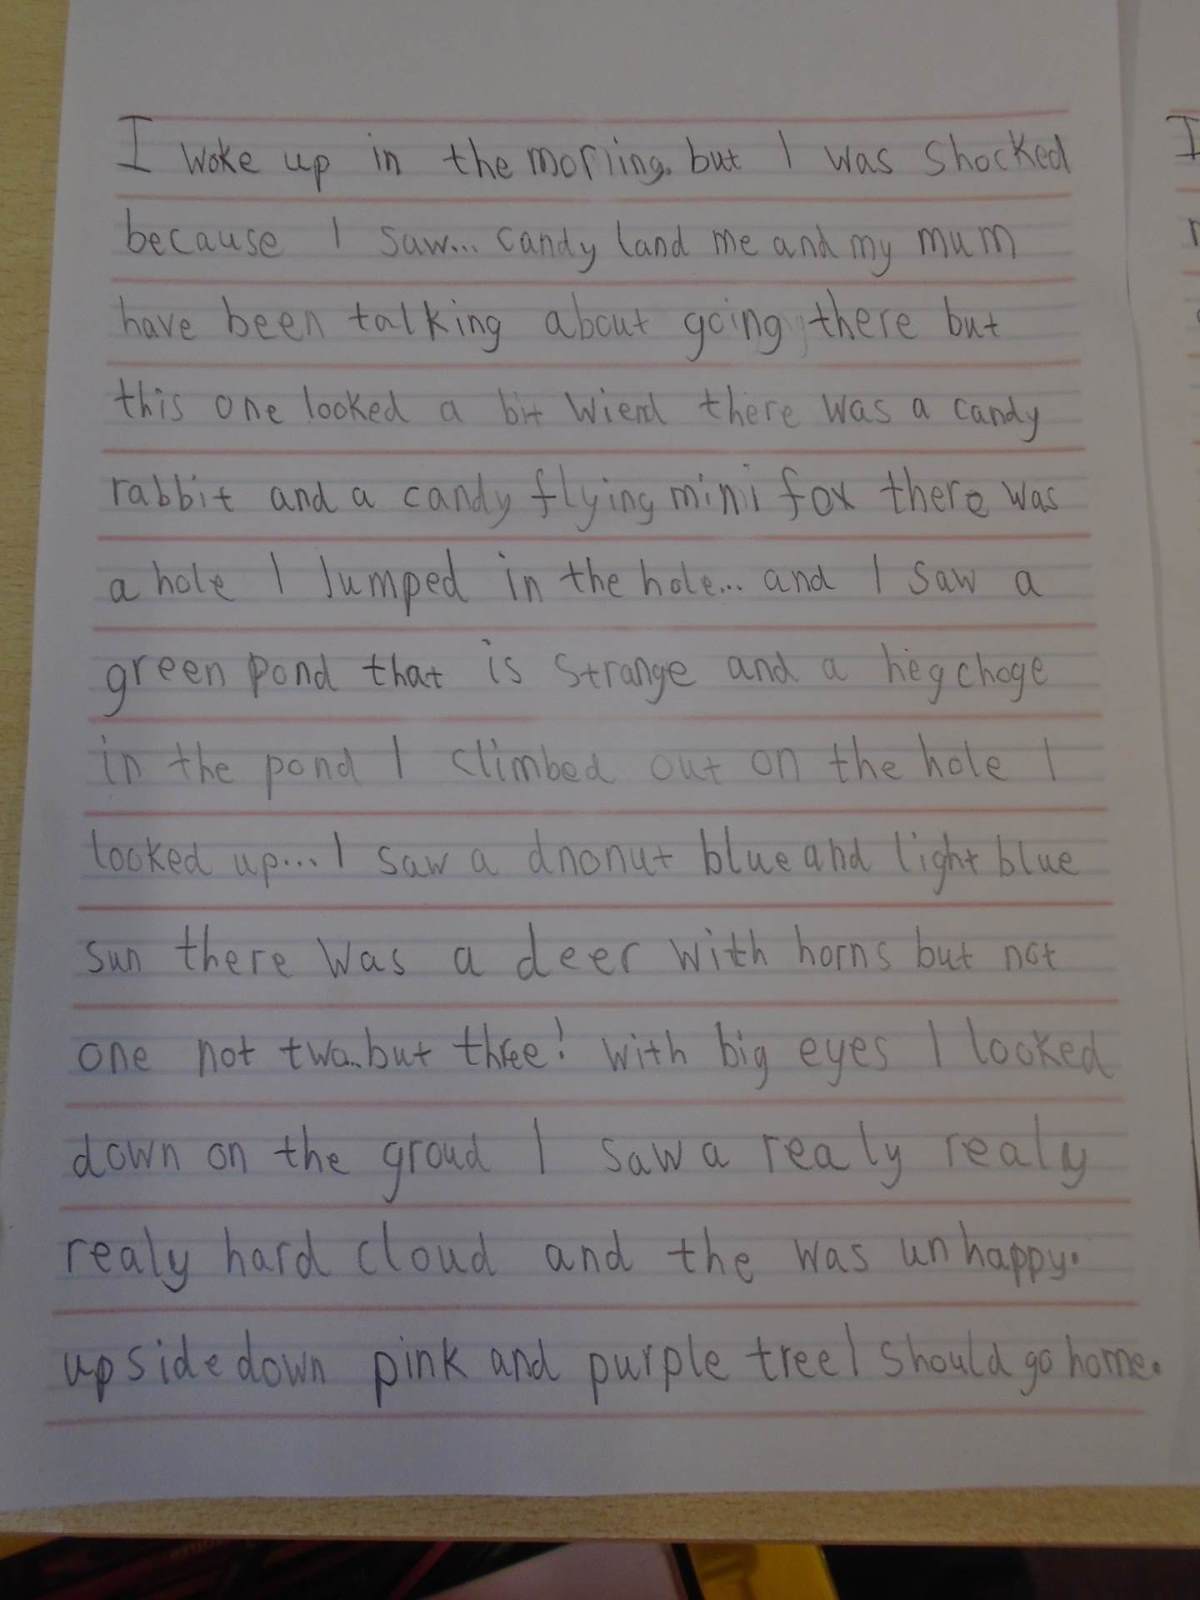 I woke up in the morning. but I was shocked
because I saw... candy land me and my mum
have been talking about going there but
this one looked a bit wierd there was a candy
rabbit and a candy flying mini fox there was
a hole I Jumped in the hole... and I saw a
green pond that is strange and a hegchoge
in the pond I climbed out on the hole I
looked up... I saw a dnonut blue and light blue
sun there was a deer with horns but not
one not two.. but three! with big eyes I looked
down on the groud I saw a realy realy
realy hard cloud and the was unhappy.
upside down pink and purple tree I should go home.